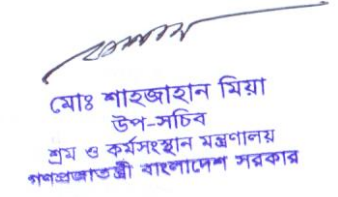 মোঃ শাহজাহান মিয়া
উপ-সচিব
শ্রম ও কর্মসংস্থান মন্ত্রণালয়
গণপ্রজাতন্ত্রী বাংলাদেশ সরকার